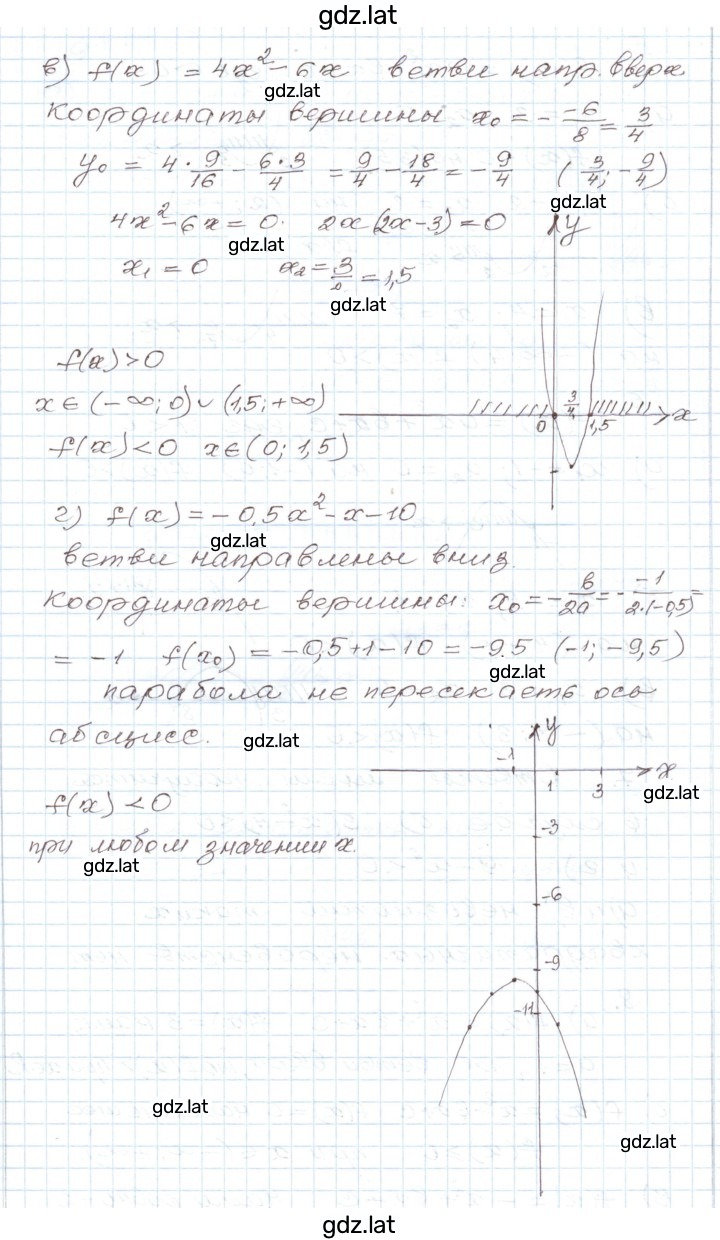 gdz.lat
в) f(x) = 4x² - 6x ветви напр. вверх
gdz.lat
Координаты вершины x₀ = - -6/8 = 3/4
y₀ = 4·9/16 - 6·3/4 = 9/4 - 18/4 = -9/4 (3/4; -9/4)
gdz.lat
4x² - 6x = 0. 2x(2x-3) = 0
gdz.lat
x₁ = 0 x₂ = 3/2 = 1,5
gdz.lat
y
f(x) > 0
x ∈ (-∞; 0) ∪ (1,5; +∞)
0 3/4 1,5 x
f(x) < 0 x ∈ (0; 1,5)
г) f(x) = -0,5x² - x - 10
gdz.lat
ветви направлены вниз.
Координаты вершины: x₀ = - в/2a = - -1/2·(-0,5) =
= -1 f(x₀) = -0,5+1-10 = -9.5 (-1; -9,5)
gdz.lat
парабола не пересекает ось
абсцисс.
gdz.lat
y
-1 1 3 x
gdz.lat
f(x) < 0
при любом значении x.
gdz.lat
-3
-6
-9
-11
gdz.lat
gdz.lat
gdz.lat